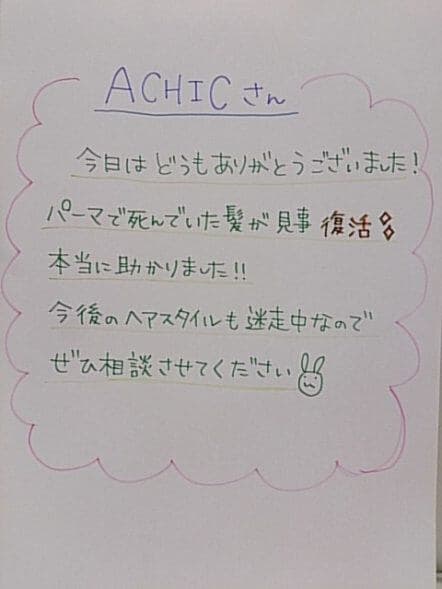 ACHICさん
今日はどうもありがとうございました!
パーマで死んでいた髪が見事復活
本当に助かりました!!
今後のヘアスタイルも迷走中なので
ぜひ相談させてください